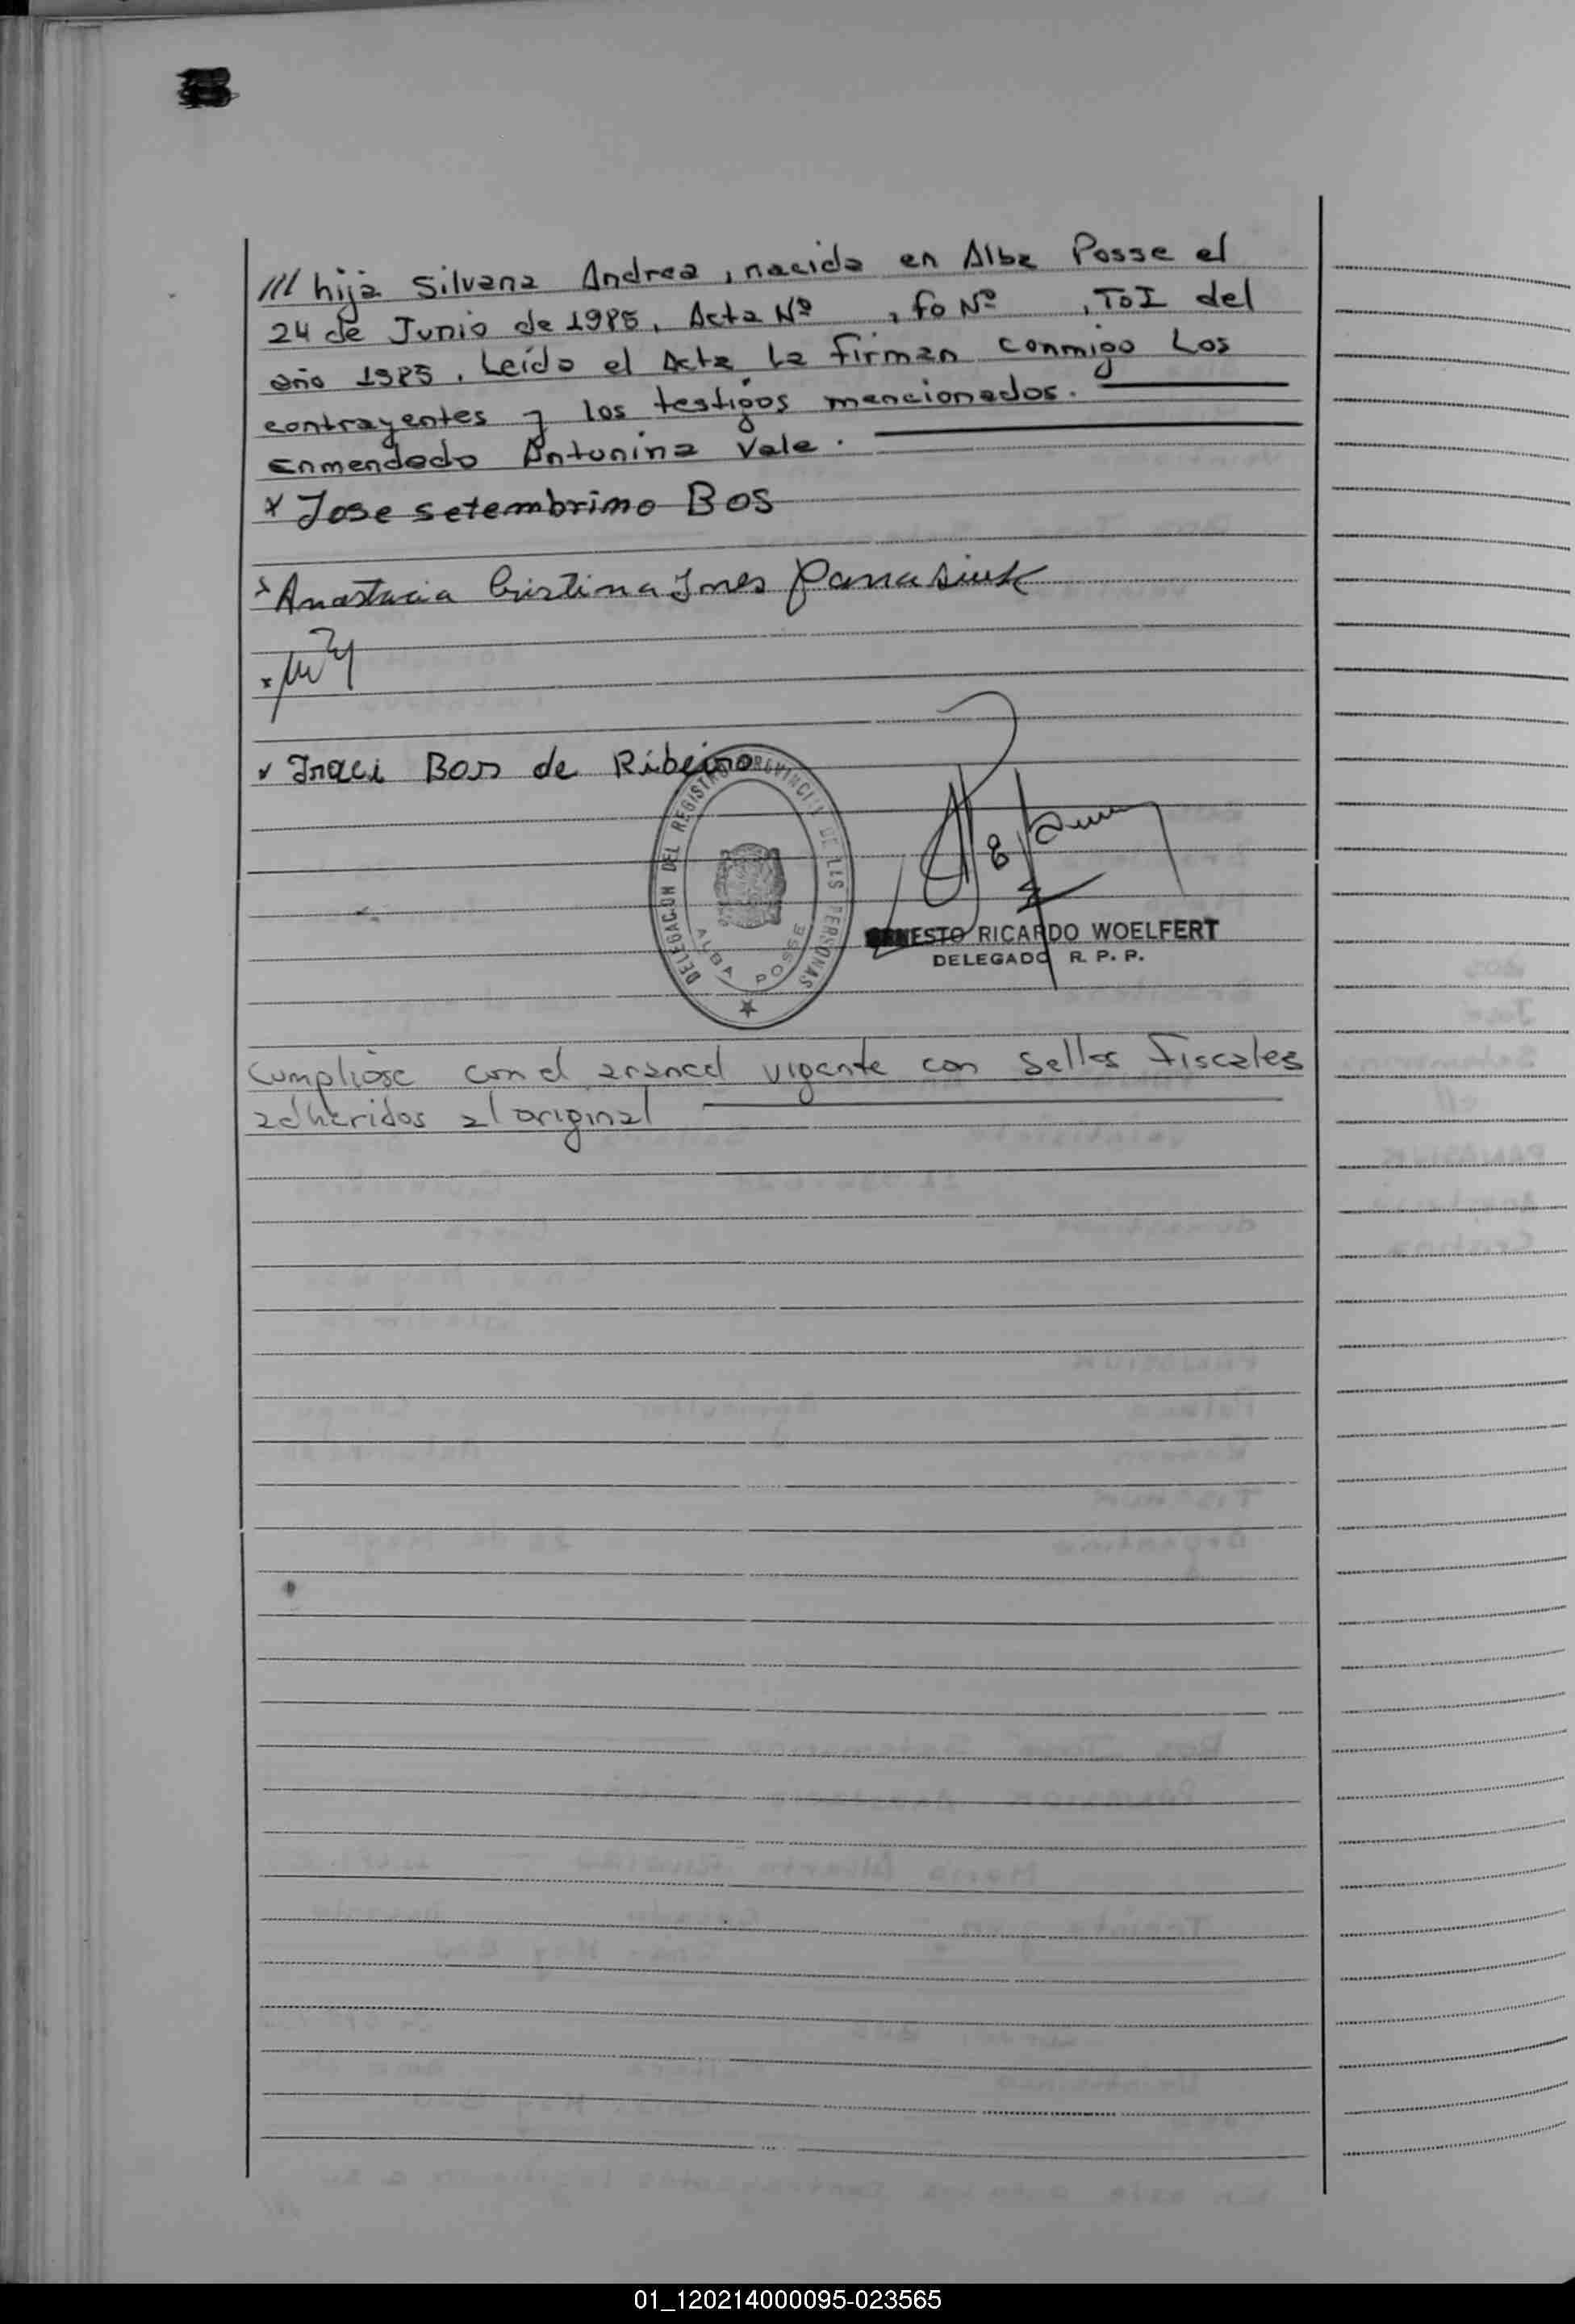 /// hija Silvana Andrea, nacida en Alba Posse el
24 de Junio de 1985, Acta Nº , fo Nº , ToI del
año 1985. Leída el Acta la firman conmigo Los
contrayentes y los testigos mencionados.
Enmendado Antonina Vale.
x Jose setembrino BOS
x Anastacia Cristina Ines Panasiuk
x
Iraci Bos de Ribeiro
DELEGACION DEL REGISTRO PROVINCIAL DE LAS PERSONAS
ALBA POSSE
ERNESTO RICARDO WOELFERT
DELEGADO R. P. P.
Cumpliose con el arancel vigente con Sellos Fiscales
adheridos al original
01_120214000095-023565